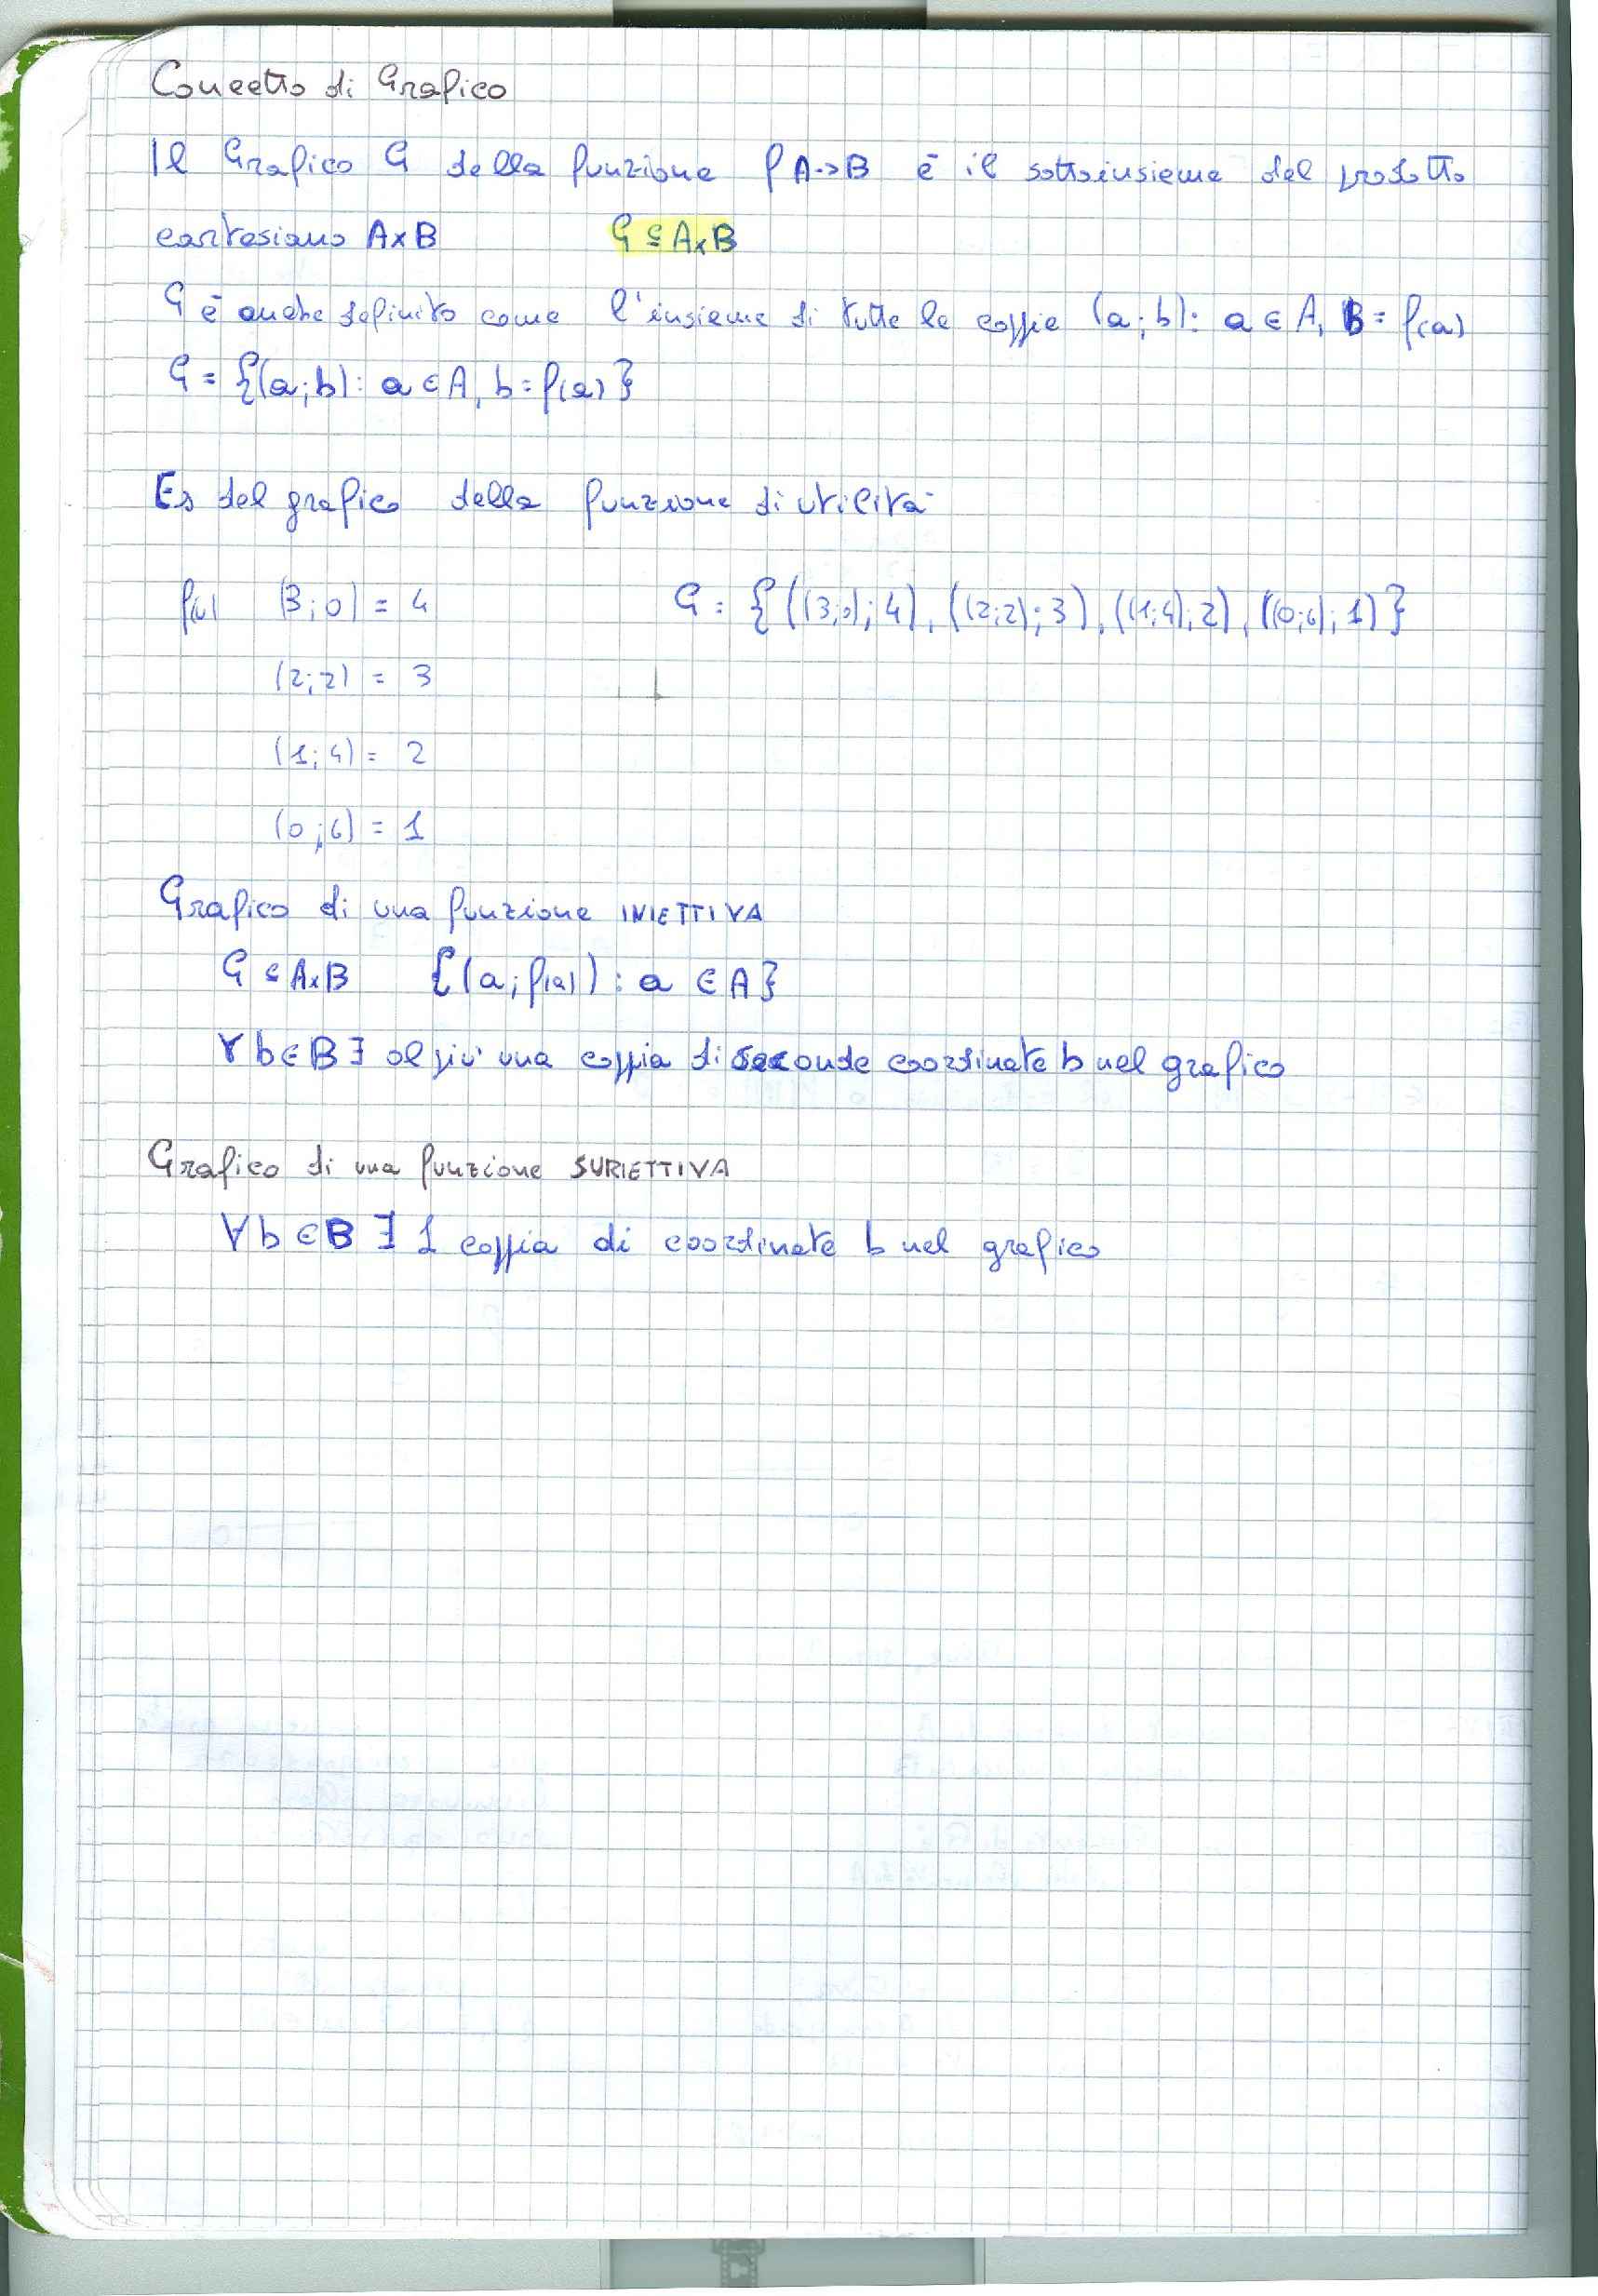 Concetto di Grafico
Il Grafico G della funzione f A->B è il sottoinsieme del prodotto
cartesiano AxB G ⊆ AxB
G è anche definito come l'insieme di tutte le coppie (a;b): a ∈ A, B = f(a)
G = {(a;b): a ∈ A, b = f(a)}
Es del grafico della funzione di utilità
(3;0) = 4 G = {((3;0);4), ((2;2);3), ((1;4);2), ((0;6);1)}
(2;2) = 3
(1;4) = 2
(0;6) = 1
Grafico di una funzione INIETTIVA
G ⊆ AxB {(a;f(a)): a ∈ A}
∀ b ∈ B ∃ al più una coppia di seconde coordinate b nel grafico
Grafico di una funzione SURIETTIVA
∀ b ∈ B ∃ 1 coppia di coordinate b nel grafico